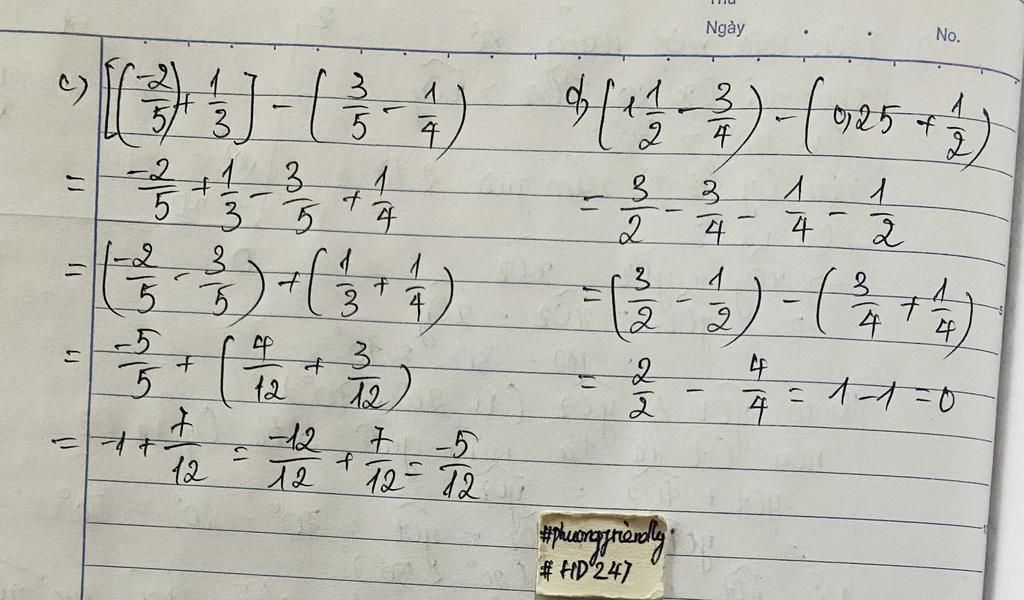 Ngày . . No.
c) [(-2/5) + 1/3] - (3/5 - 1/4)
= -2/5 + 1/3 - 3/5 + 1/4
= (-2/5 - 3/5) + (1/3 + 1/4)
= -5/5 + (4/12 + 3/12)
= -1 + 7/12 = -12/12 + 7/12 = -5/12
d, (1 1/2 - 3/4) - (0,25 + 1/2)
= 3/2 - 3/4 - 1/4 - 1/2
= (3/2 - 1/2) - (3/4 + 1/4)
= 2/2 - 4/4 = 1 - 1 = 0
#phuongfriendly
# HD247